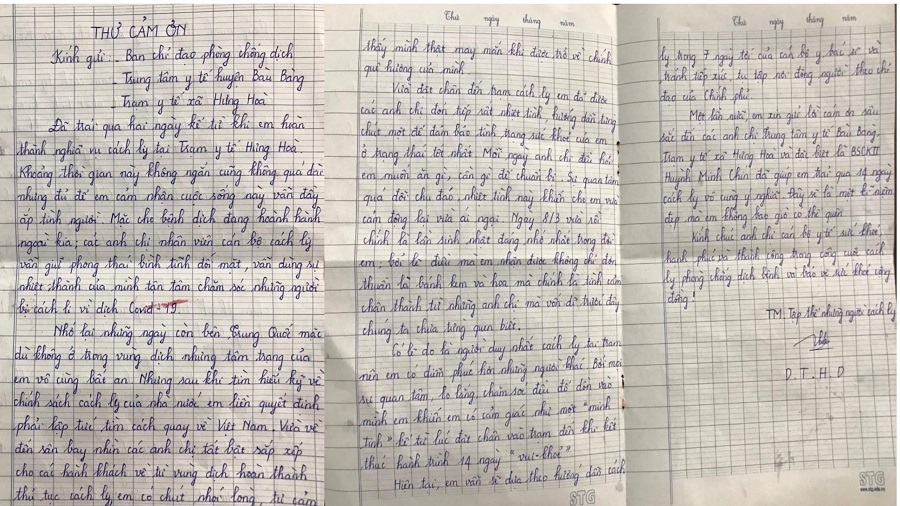 THƯ CẢM ƠN
Kính gửi: - Ban chỉ đạo phòng chống dịch
- Trung tâm y tế huyện Bàu Bàng
- Trạm y tế xã Hưng Hoà
Đã trải qua hai ngày kể từ khi em hoàn
thành nghĩa vụ cách ly tại Trạm y tế Hưng Hoà
Khoảng thời gian này không ngắn cũng không quá dài
nhưng đủ để em cảm nhận cuộc sống này vẫn đầy
ắp tình người. Mặc cho bệnh dịch đang hoành hành
ngoài kia; các anh chị nhân viên cán bộ cách ly
vẫn giữ phong thái bình tĩnh đối mặt, vẫn dùng sự
nhiệt thành của mình tận tâm chăm sóc những người
bị cách li vì dịch Covid-19.
Nhớ lại những ngày còn bên Trung Quốc mặc
dù không ở trong vùng dịch nhưng tâm trạng của
em vô cùng bất an. Nhưng sau khi tìm hiểu kỹ về
chính sách cách ly của nhà nước em liền quyết định
phải lập tức tìm cách quay về Việt Nam. Vừa về
đến sân bay nhìn các anh chị tất bật sắp xếp
cho các hành khách về từ vùng dịch hoàn thành
thủ tục cách ly em có chút nhói lòng, tự cảm
Thứ ngày tháng năm
thấy mình thật may mắn khi được trở về chính
quê hương của mình.
Vừa đặt chân đến trạm cách ly em đã được
các anh chị đón tiếp rất nhiệt tình, hướng dẫn từng
chút một để đảm bảo tình trạng sức khoẻ của em
ở trạng thái tốt nhất. Mỗi ngày anh chị đều hỏi
em muốn ăn gì, cần gì để chuẩn bị. Sự quan tâm
quá đỗi chu đáo, nhiệt tình này khiến cho em vừa
cảm động lại vừa ái ngại. Ngày 8/3 vừa rồi
chính là lần sinh nhật đáng nhớ nhất trong đời
em; bởi lẽ điều mà em nhận được không chỉ đơn
thuần là bánh kem và hoa mà chính là tình cảm
chân thành từ những anh chị mà vốn dĩ trước đây
chúng ta chưa từng quen biết.
Có lẽ do là người duy nhất cách ly tại trạm
nên em có diễm phúc hơn những người khác. Bởi mọi
sự quan tâm, lo lắng, chăm sóc đều đổ dồn vào
mình em khiến em có cảm giác như một "minh
tinh" kể từ lúc đặt chân vào trạm đến khi kết
thúc hành trình 14 ngày "vui - khoẻ"
Hiện tại, em vẫn sẽ dựa theo hướng dẫn cách
STG
Thứ ngày tháng năm
ly trong 7 ngày tới của cán bộ y bác sĩ và
tránh tiếp xúc, tụ tập nơi đông người theo chỉ
đạo của Chính phủ.
Một lần nữa, em xin gửi lời cảm ơn sâu
sắc đến các anh chị Trung tâm y tế Bàu Bàng.
Trạm y tế xã Hưng Hoà và đặc biệt là BSCKII
Huỳnh Minh Chín đã giúp em trải qua 14 ngày
cách ly vô cùng ý nghĩa. Đây sẽ là một kỉ niệm
đẹp mà em không bao giờ có thể quên.
Kính chúc anh chị cán bộ y tế sức khoẻ,
hạnh phúc và thành công trong công cuộc cách
ly phòng chống dịch bệnh và bảo vệ sức khoẻ cộng
đồng!
TM. Tập thể những người cách ly
D.T.H.D
STG
www.stg.edu.vn